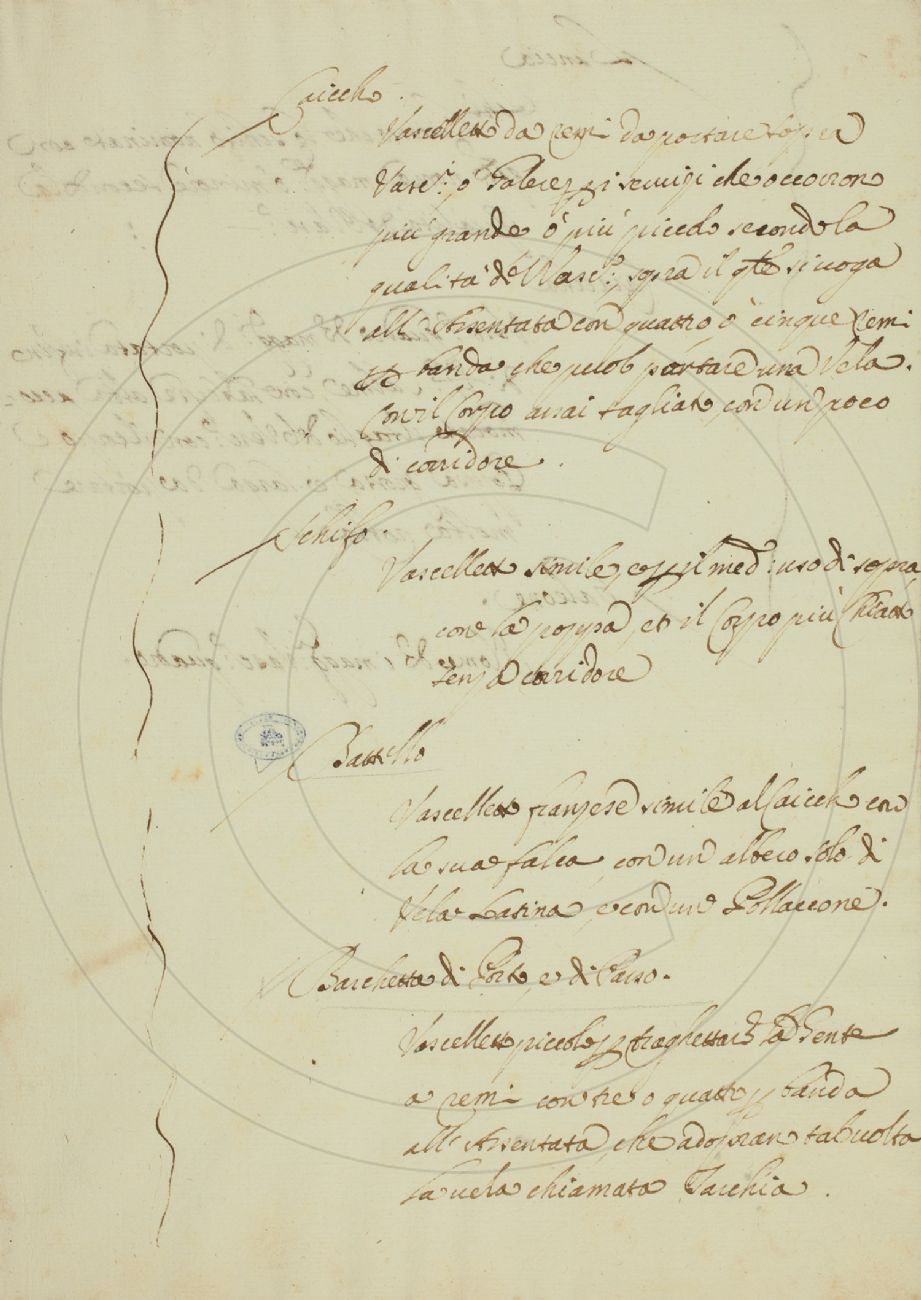 Caiccho.
Vascelletto da remi da portare sop.a
Vasc.i o Galere p gi servigi che occorron
più grande o più piccolo secondo la
qualità de Vasc.i, sopra il qle si voga
all' Assentata con quattro, o cinque remi
p banda che può portare una Vela.
Con il Corpo assai tagliato, con un poco
di corridore.
Schifo.
Vascelletto simile, e p il med. uso di sopra
con la poppa, et il Corpo più chiatto
senza corridore
Battello
Vascelletto franzese simile al Caiccho con
la sua falca, con un albero solo di
Vela Latina, e con un Pollaccone.
Barchetta di Porto, e di Passo.
Vascelletto piccolo p traghettar la Gente
a remi con tre o quattro p banda
all' Assentata, che adopran talvolta
la vela chiamata Tarchia.